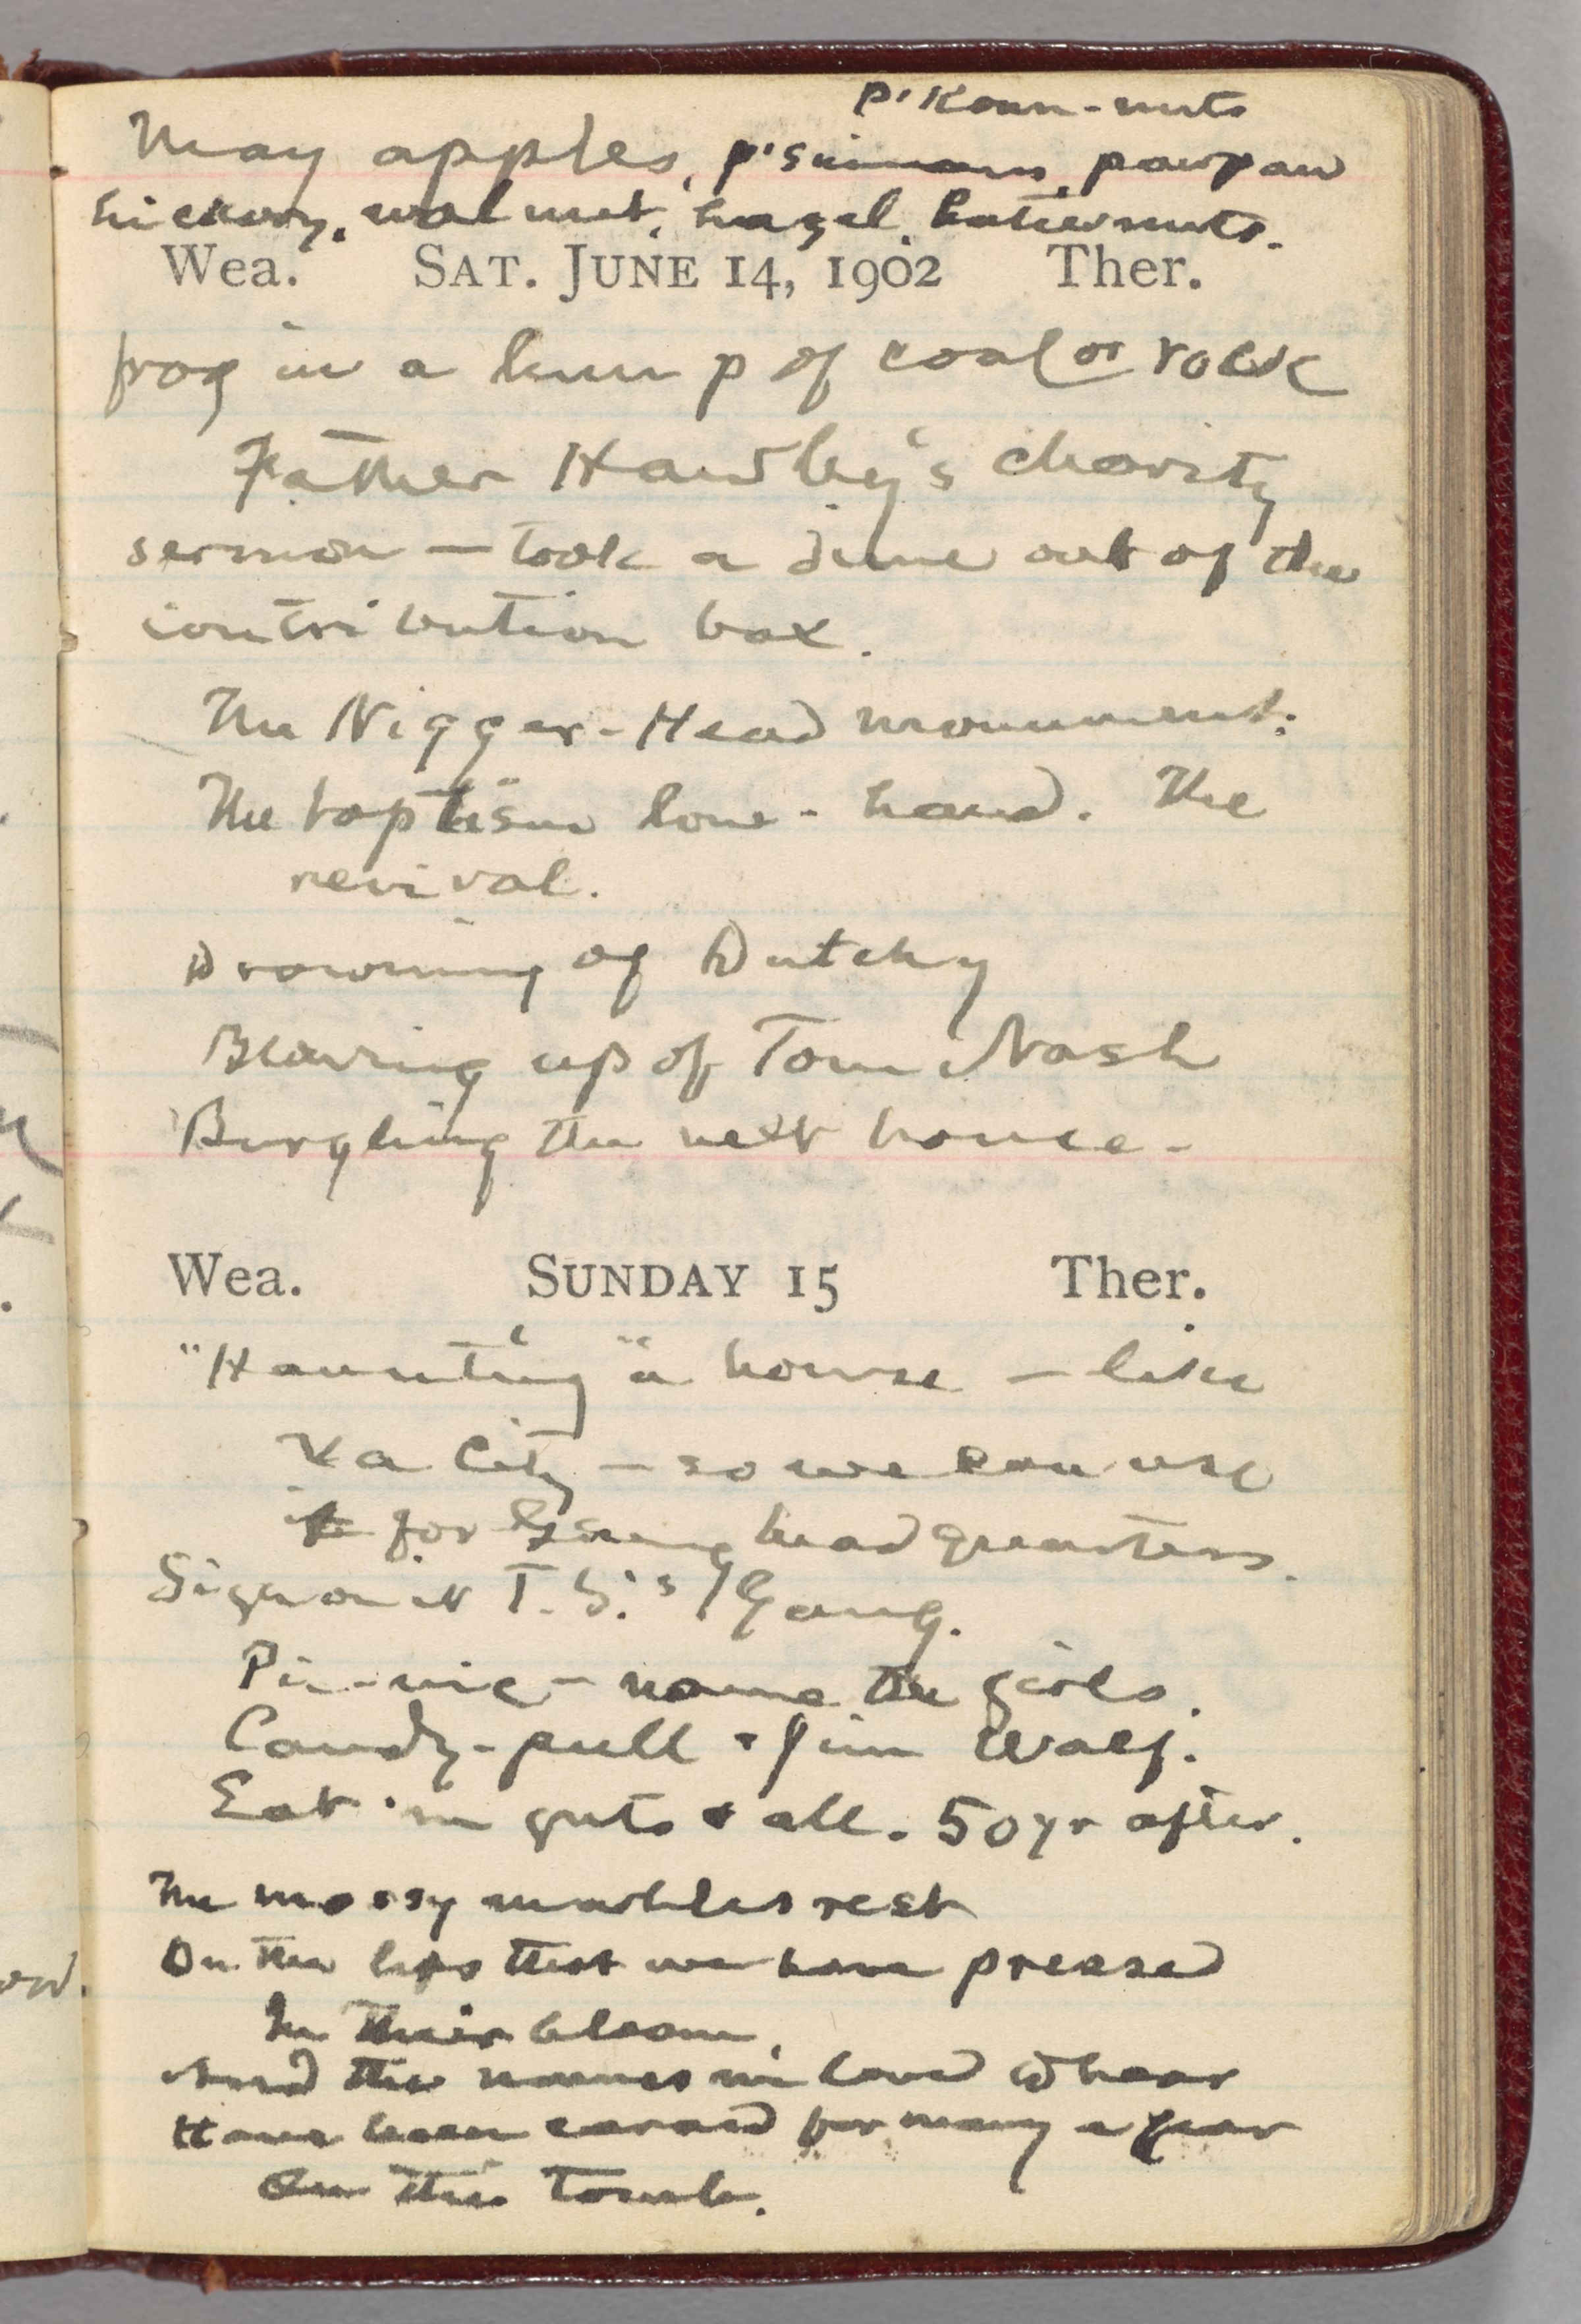 P'Kann-nuts
May apples, p'simmons, pawpaw
hickory, walnut, hazel, butternuts.
Wea. SAT. JUNE 14, 1902 Ther.
frog in a lump of coal or rock
Father Hawley's charity
sermon — took a dime out of the
contribution box.
The Nigger-Head monument.
The baptism low-hand. The
revival.
Drowning of Dutchy
Blowing up of Tom Nash
Burgling the next house.
Wea. SUNDAY 15 Ther.
"Haunting" a house — like
Va City — so we can use
it for Gang headquarters.
Sign on it T. S.'s Gang.
Pic-nic — name the girls.
Candy-pull & Jim Wolf.
Eat 'm guts & all. 50 yr after.
The mossy marbles rest
On the lips that we have pressed
In their bloom,
And the names we loved to hear
Have been carved for many a year
On the tomb.